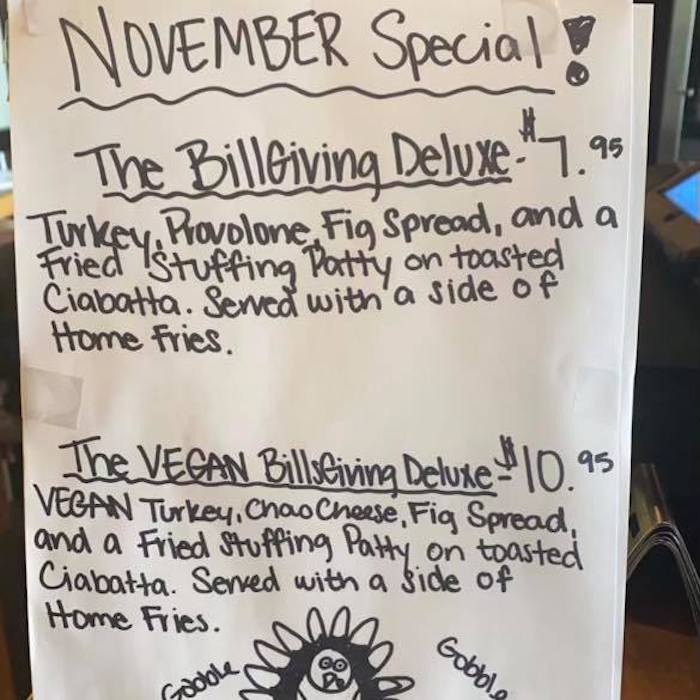 NOVEMBER Special!
The BillGiving Deluxe-$7.95
Turkey, Provolone, Fig Spread, and a
Fried Stuffing Patty on toasted
Ciabatta. Served with a side of
Home Fries.
The VEGAN BillsGiving Deluxe-$10.95
VEGAN Turkey, Chao Cheese, Fig Spread,
and a Fried Stuffing Patty on toasted
Ciabatta. Served with a side of
Home Fries.
Gobble
Gobble